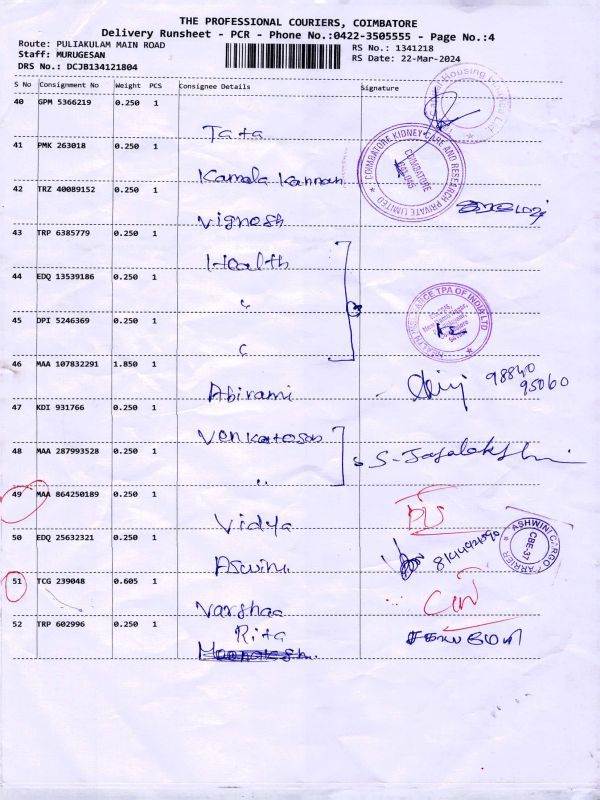 THE PROFESSIONAL COURIERS, COIMBATORE
Delivery Runsheet - PCR - Phone No.:0422-3505555 - Page No.:4
Route: PULIAKULAM MAIN ROAD
RS No.: 1341218
Staff: MURUGESAN
RS Date: 22-Mar-2024
DRS No.: DCJB134121804
S No Consignment No Weight PCS Consignee Details Signature
40 GPM 5366219 0.250 1
Tata
41 PMK 263018 0.250 1
COIMBATORE KIDNEY CARE AND RESEARCH PRIVATE LIMITED
COIMBATORE
Kamala Kannan
42 TRZ 40089152 0.250 1
Vignesh
43 TRP 6385779 0.250 1
Health
44 EDQ 13539186 0.250 1
"
45 DPI 5246369 0.250 1
TPA OF INDIA LTD
"
46 MAA 107832291 1.850 1
Abirami
98840
95060
47 KDI 931766 0.250 1
Venkatesan
48 MAA 287993528 0.250 1
S-Jayalakshmi
"
49 MAA 864250189 0.250 1
Vidya
50 EDQ 25632321 0.250 1
ASHWINI CARGO CARRIER
CBE-37
Aswini
51 TCG 239048 0.605 1
Varshaa
52 TRP 602996 0.250 1
Rita